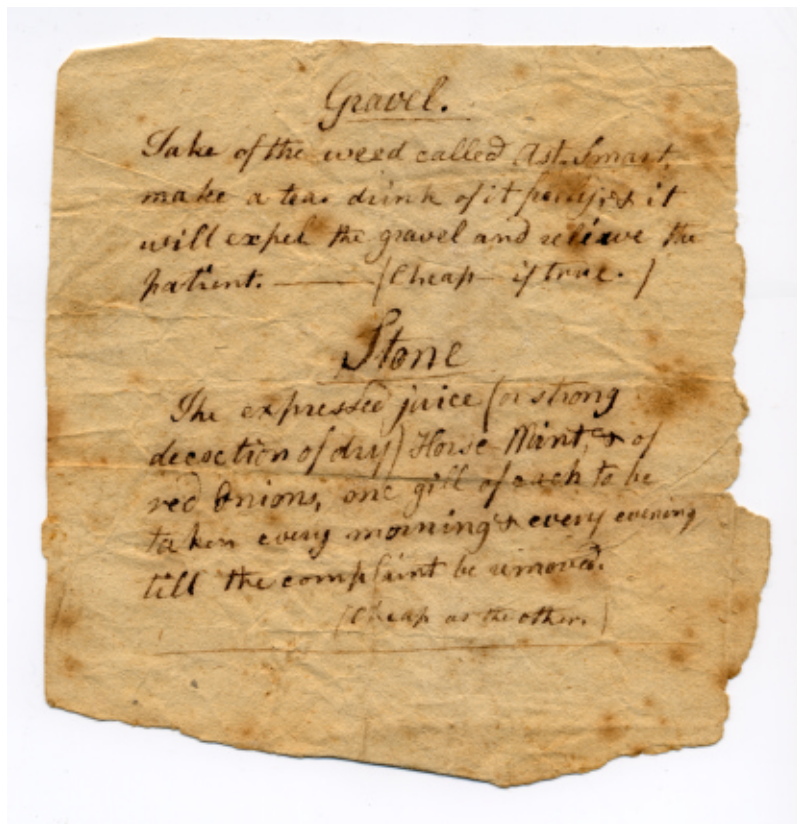 Gravel.
Take of the weed called Ast-Smart,
make a tea. drink of it freely, & it
will expel the gravel and relieve the
patient. ——— (Cheap — if true.)
Stone
The expressed juice (or strong
decoction of dry) Horse-Mint, & of
red Onions, one gill of each to be
taken every morning & every evening
till the complaint be removed.
(Cheap as the other.)